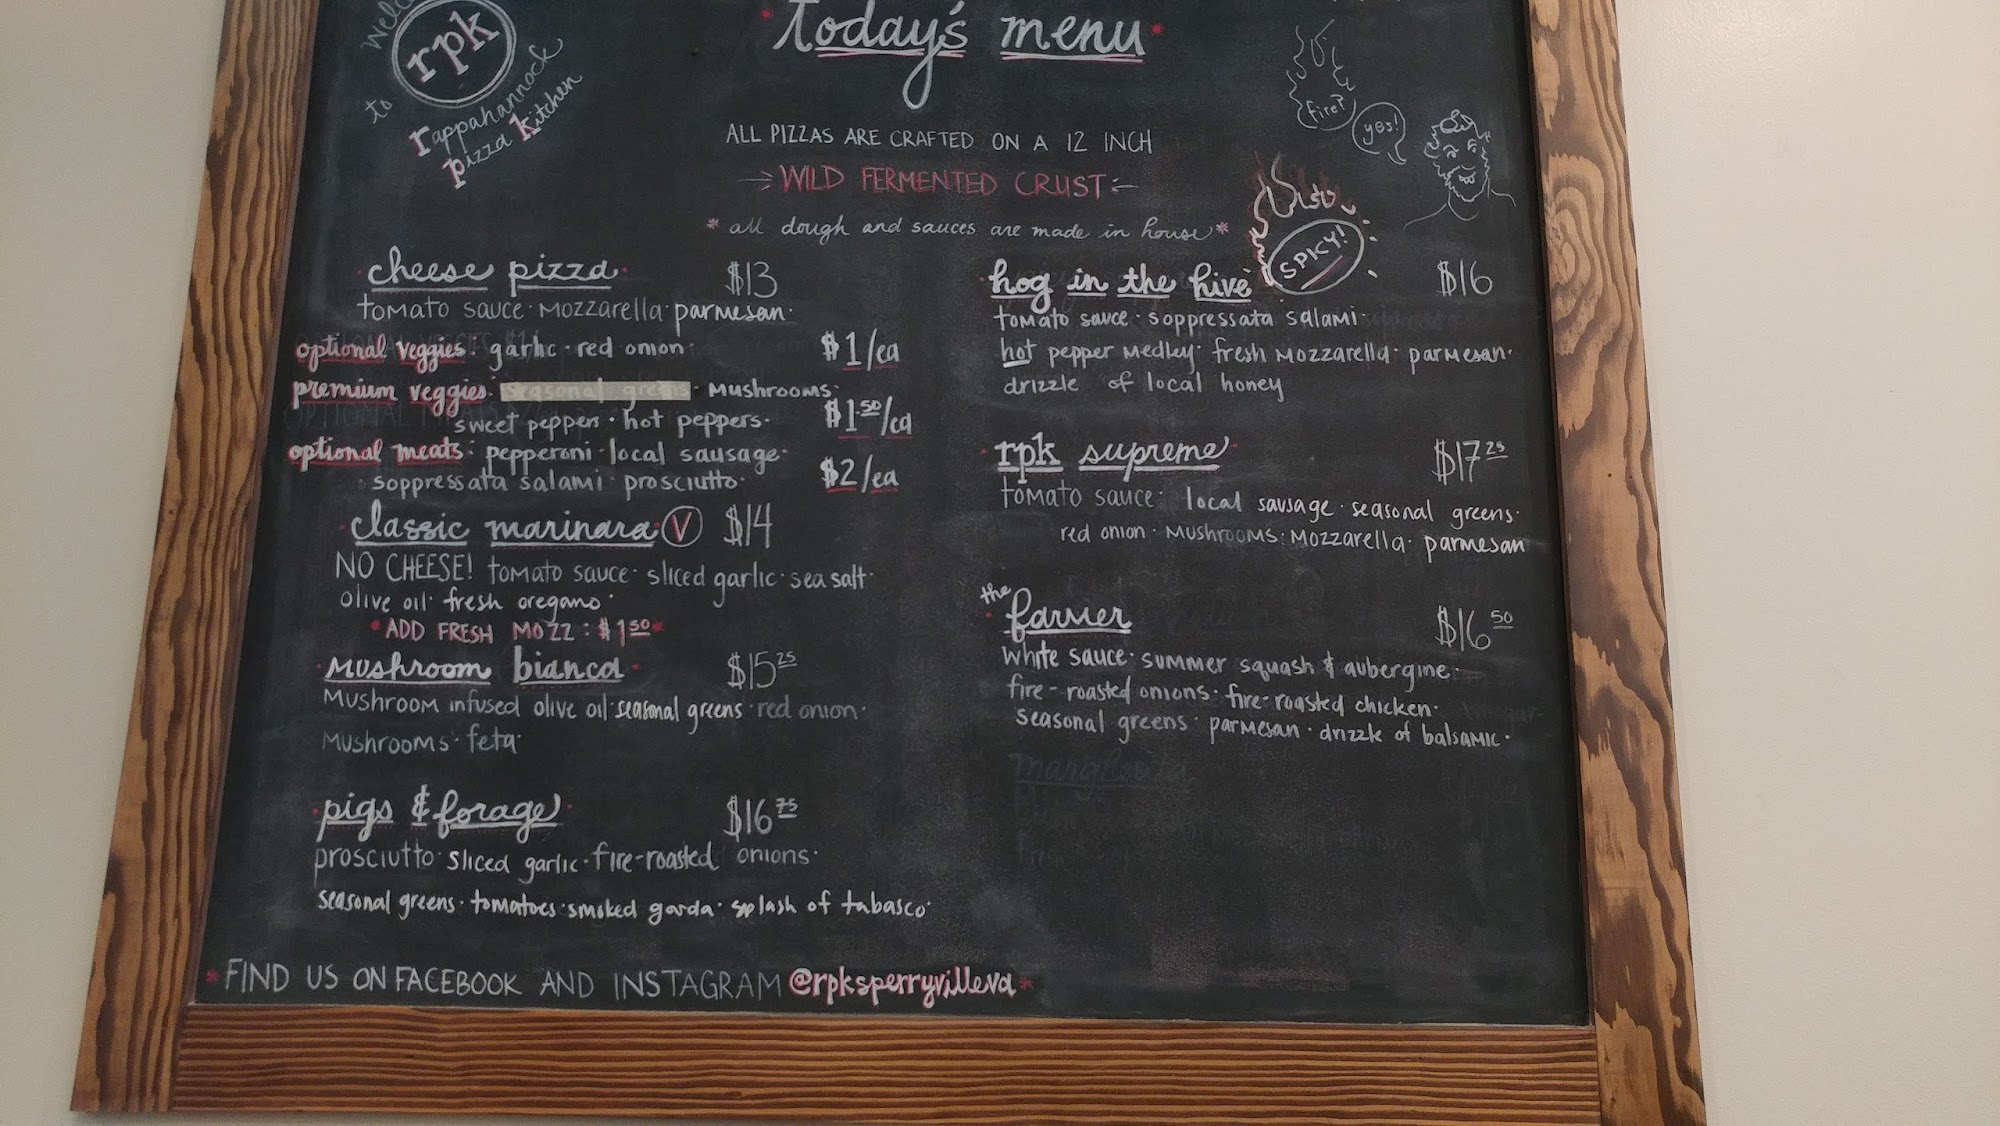 welcome
to
rpk
rappahannock
pizza kitchen
today's menu
fire?
yes!
ALL PIZZAS ARE CRAFTED ON A 12 INCH
WILD FERMENTED CRUST
*all dough and sauces are made in house*
cheese pizza $13
tomato sauce · mozzarella · parmesan ·
optional veggies: garlic · red onion · $1/ea
premium veggies: seasonal greens · mushrooms ·
sweet peppers · hot peppers · $1.50/ea
optional meats: pepperoni · local sausage ·
soppressata salami · prosciutto · $2/ea
classic marinara V $14
NO CHEESE! tomato sauce · sliced garlic · sea salt ·
olive oil · fresh oregano ·
*ADD FRESH MOZZ: $1.50*
mushroom bianca $15.25
mushroom infused olive oil · seasonal greens · red onion ·
mushrooms · feta ·
pigs & forage $16.75
prosciutto · sliced garlic · fire-roasted onions ·
seasonal greens · tomatoes · smoked garda · splash of tabasco ·
SPICY!
hog in the hive $16
tomato sauce · soppressata salami ·
hot pepper medley · fresh mozzarella · parmesan ·
drizzle of local honey
rpk supreme $17.25
tomato sauce · local sausage · seasonal greens ·
red onion · mushrooms · mozzarella · parmesan
the farmer $16.50
white sauce · summer squash & aubergine ·
fire-roasted onions · fire-roasted chicken ·
seasonal greens · parmesan · drizzle of balsamic ·
margherita
*FIND US ON FACEBOOK AND INSTAGRAM @rpksperryvilleva*